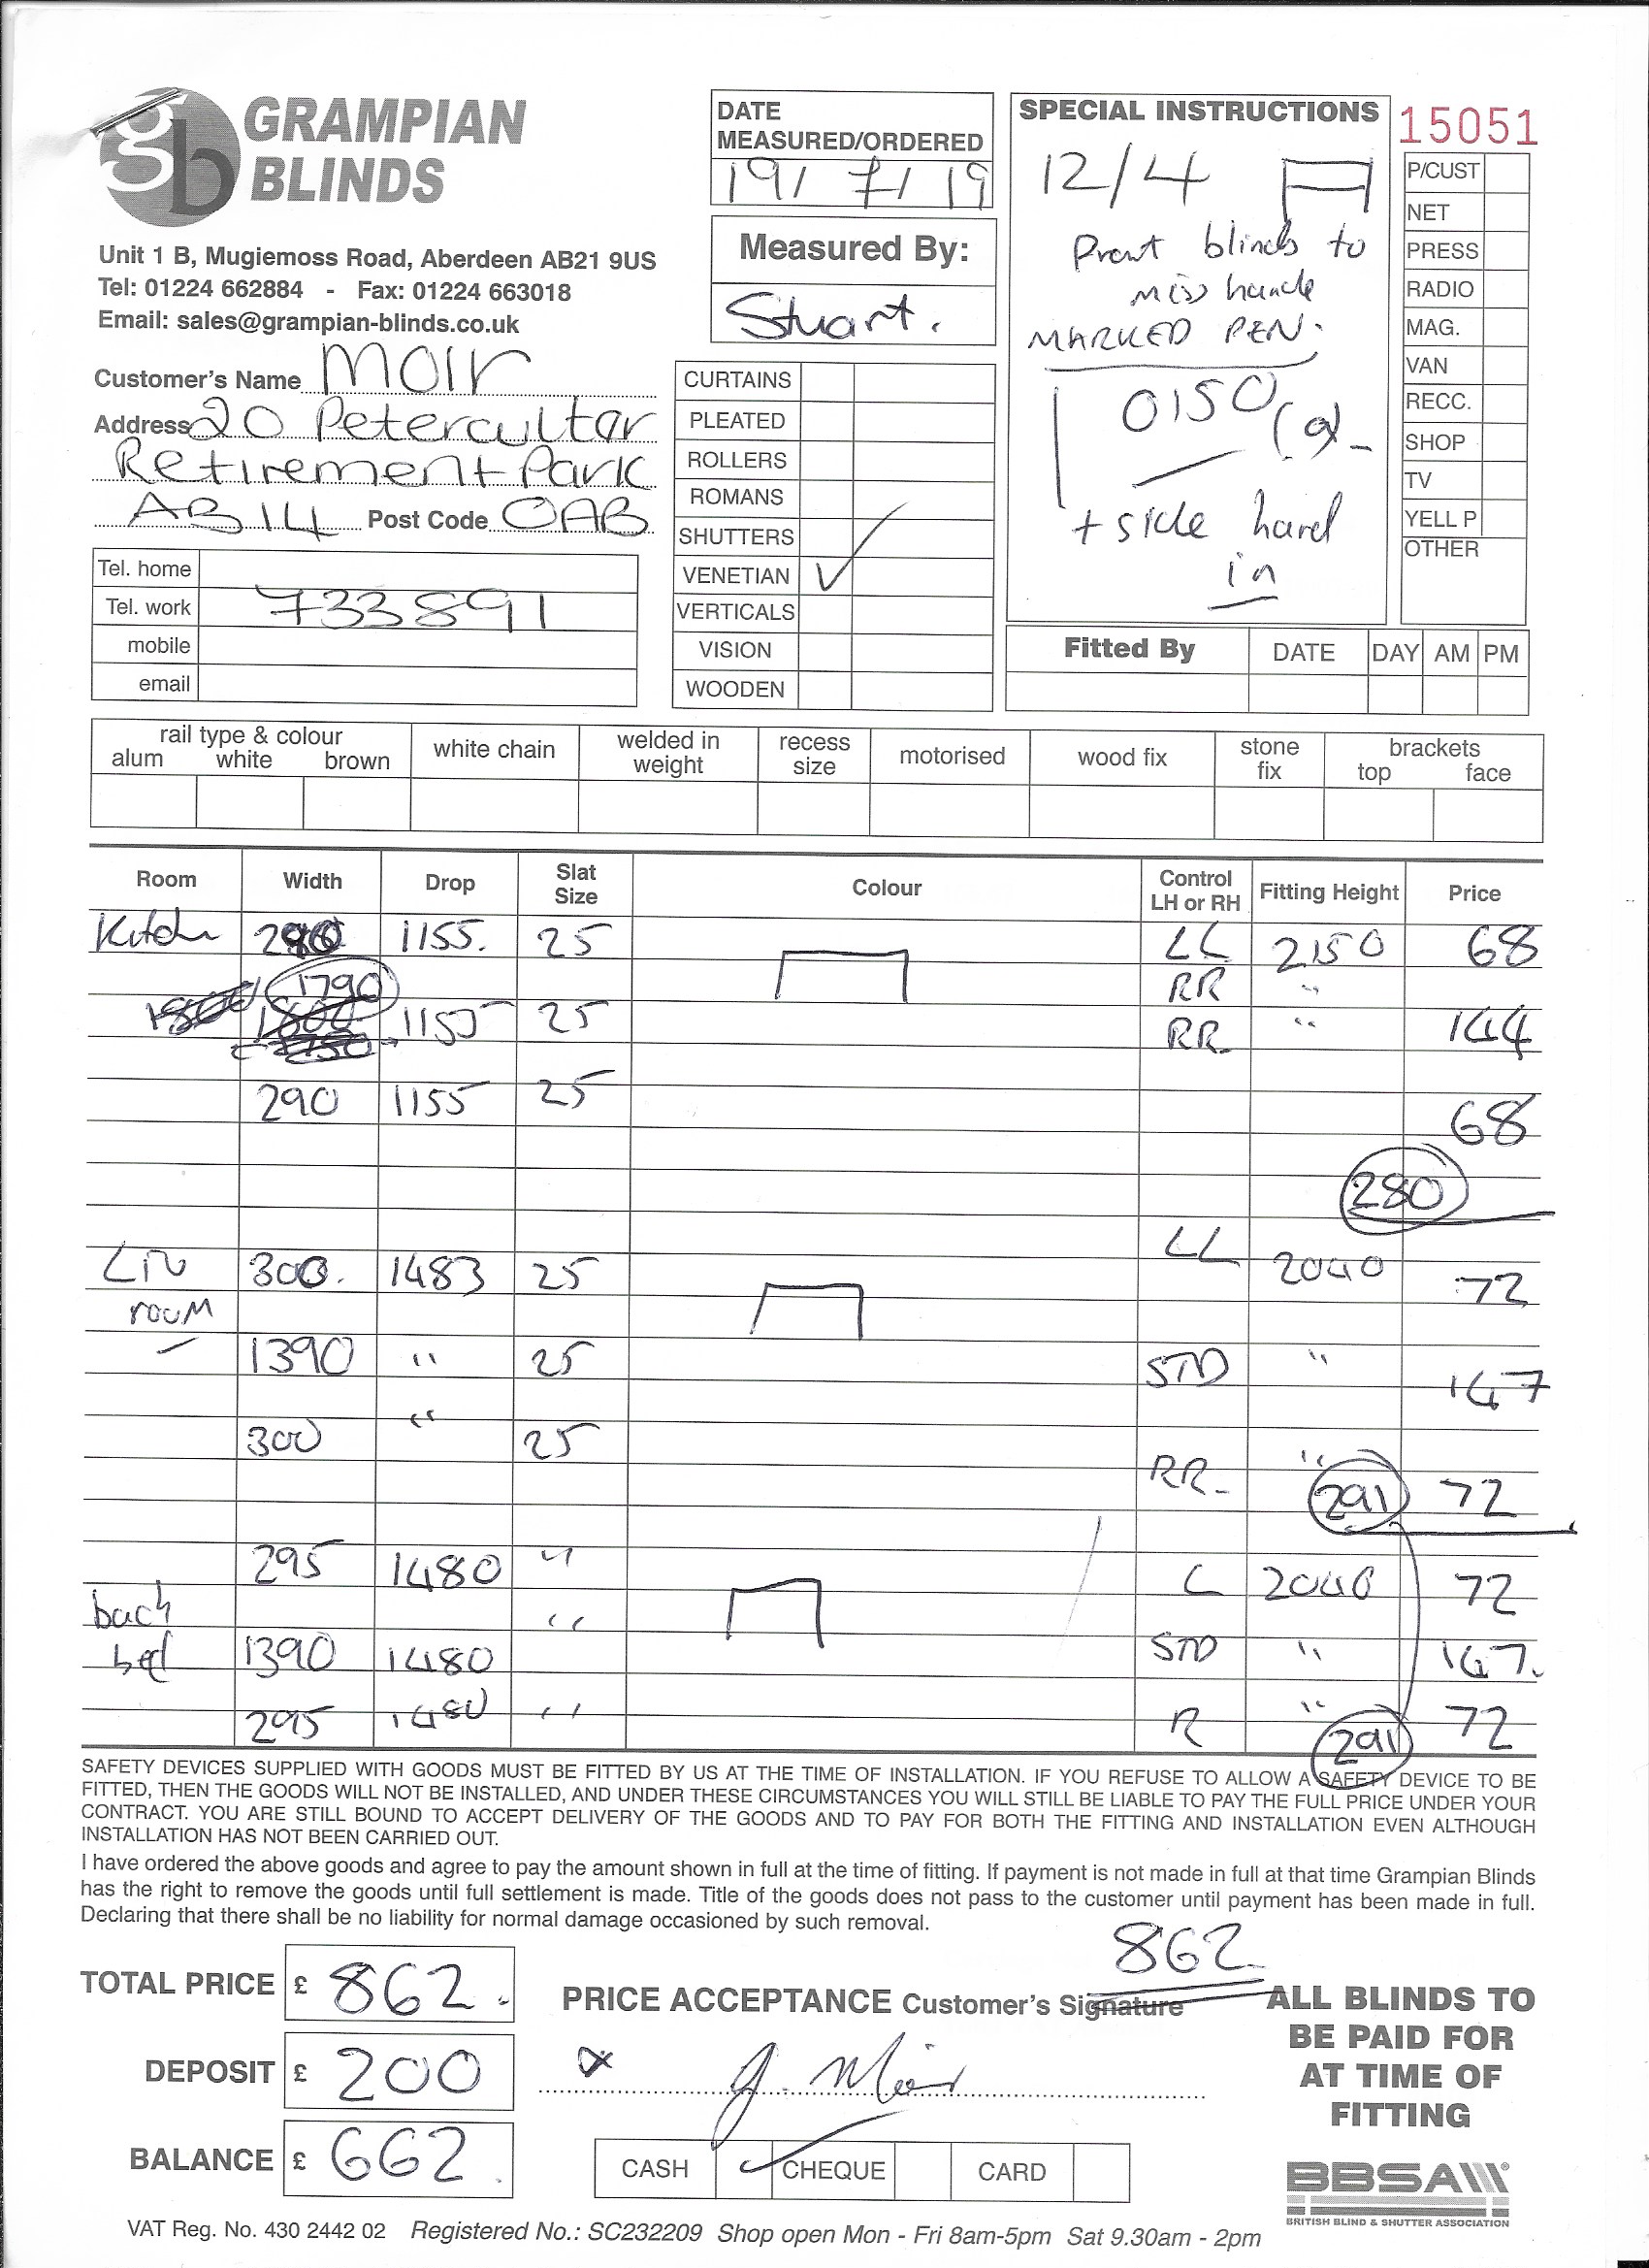 GRAMPIAN
BLINDS
Unit 1 B, Mugiemoss Road, Aberdeen AB21 9US
Tel: 01224 662884 - Fax: 01224 663018
Email: sales@grampian-blinds.co.uk
Customer's Name Moir
Address 20 Petercultar
Retirement Park
AB14 Post Code 0AB
Tel. home
Tel. work 733891
mobile
email
DATE
MEASURED/ORDERED
19/7/19
Measured By:
Stuart.
CURTAINS
PLEATED
ROLLERS
ROMANS
SHUTTERS
VENETIAN ✓
VERTICALS
VISION
WOODEN
SPECIAL INSTRUCTIONS
12/4
Front blinds to
miss handle
MARKED PEN.
0150
+ side hard
in
15051
P/CUST
NET
PRESS
RADIO
MAG.
VAN
RECC.
SHOP
TV
YELL P
OTHER
Fitted By DATE DAY AM PM
rail type & colour
alum white brown
white chain
welded in
weight
recess
size
motorised
wood fix
stone
fix
brackets
top face
Room Width Drop Slat Size Colour Control LH or RH Fitting Height Price
Kitchn 290 1155. 25 LL 2150 68
1790 RR "
1155 25 RR " 144
290 1155 25 68
280
Liv 300. 1483 25 LL 2040 72
room
1390 " 25 STD " 147
300 " 25
RR " 291 72
295 1480 " L 2040 72
back "
bed 1390 1480 STD " 147.
295 1480 " R " 72
291
SAFETY DEVICES SUPPLIED WITH GOODS MUST BE FITTED BY US AT THE TIME OF INSTALLATION. IF YOU REFUSE TO ALLOW A SAFETY DEVICE TO BE
FITTED, THEN THE GOODS WILL NOT BE INSTALLED, AND UNDER THESE CIRCUMSTANCES YOU WILL STILL BE LIABLE TO PAY THE FULL PRICE UNDER YOUR
CONTRACT. YOU ARE STILL BOUND TO ACCEPT DELIVERY OF THE GOODS AND TO PAY FOR BOTH THE FITTING AND INSTALLATION EVEN ALTHOUGH
INSTALLATION HAS NOT BEEN CARRIED OUT.
I have ordered the above goods and agree to pay the amount shown in full at the time of fitting. If payment is not made in full at that time Grampian Blinds
has the right to remove the goods until full settlement is made. Title of the goods does not pass to the customer until payment has been made in full.
Declaring that there shall be no liability for normal damage occasioned by such removal.
862
TOTAL PRICE £ 862.
DEPOSIT £ 200
BALANCE £ 662.
PRICE ACCEPTANCE Customer's Signature
x J. Moir
CASH ✓ CHEQUE CARD
ALL BLINDS TO
BE PAID FOR
AT TIME OF
FITTING
BBSA
BRITISH BLIND & SHUTTER ASSOCIATION
VAT Reg. No. 430 2442 02 Registered No.: SC232209 Shop open Mon - Fri 8am-5pm Sat 9.30am - 2pm